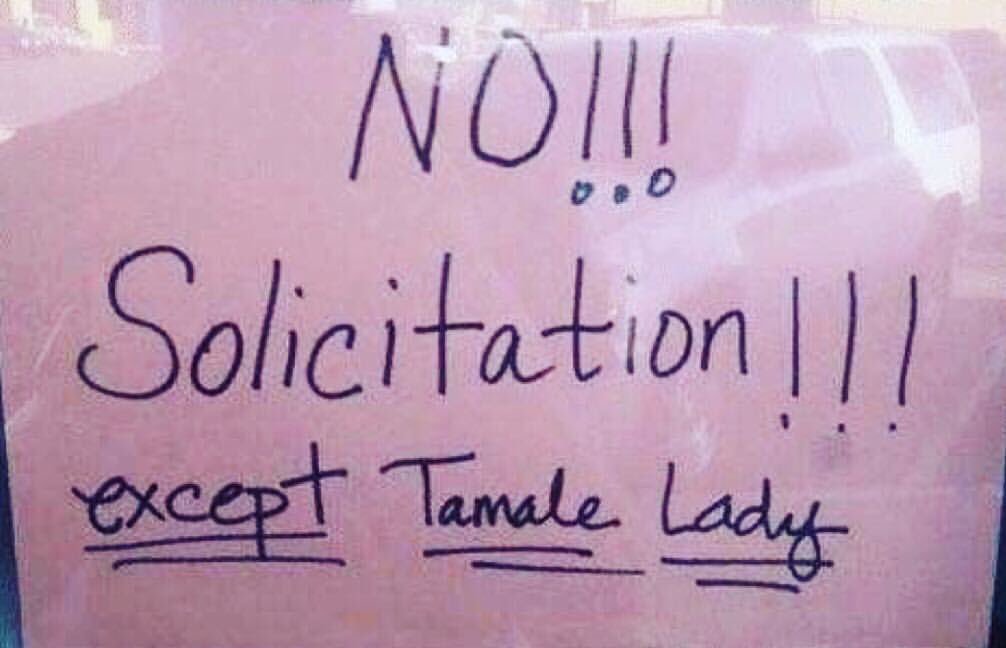 NO!!!
Solicitation!!!
except Tamale Lady